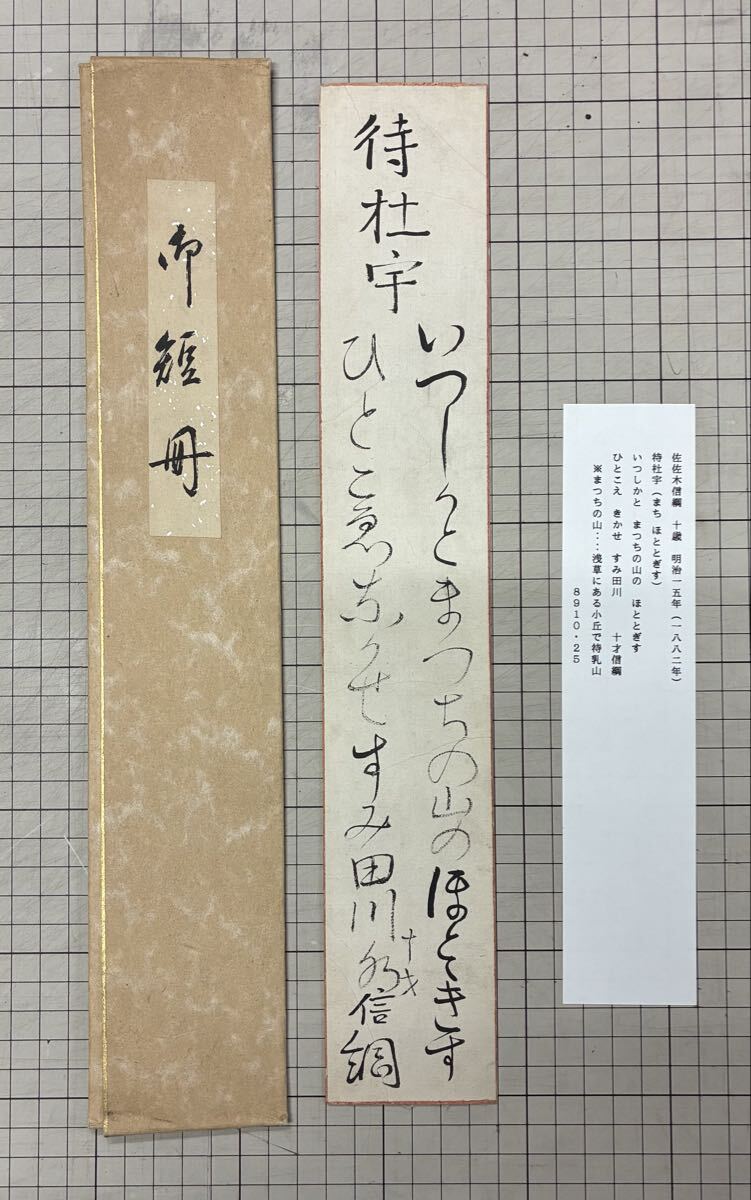 御短冊
待杜宇
いつしかとまつちの山のほとゝきす
ひとこゑかせすみ田川
十才
信綱
佐佐木信綱　十歳　明治一五年（一八八二年）
待杜宇（まち ほととぎす）
いつしかと　まつちの山の　ほととぎす
ひとこえ　きかせ　すみ田川　　十才信綱
※まつちの山‥‥浅草にある小丘で待乳山
８９１０・２５